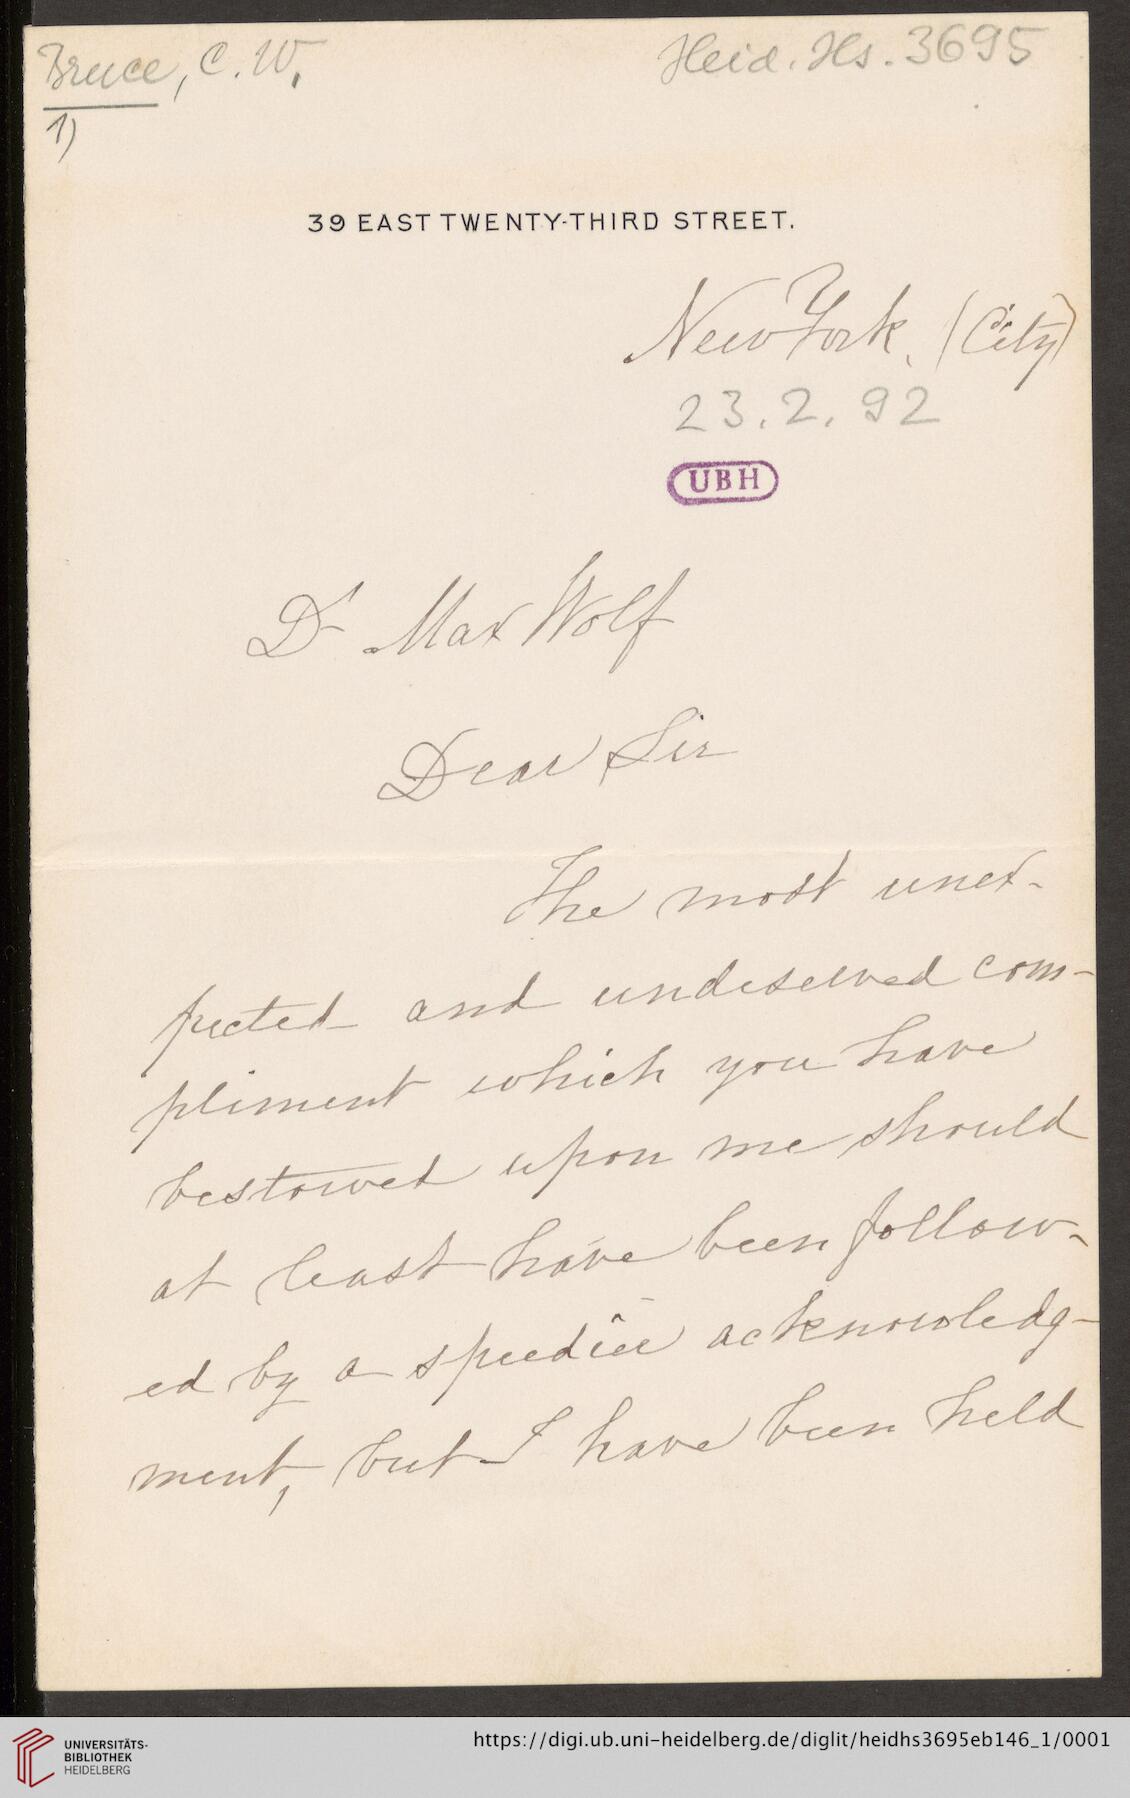 Bruce, C. W.
Heid. Hs. 3695
1)
39 EAST TWENTY-THIRD STREET.
New York, (City)
23.2.92
UBH
Dr Max Wolf
Dear Sir
The most unex-
pected and undeserved com-
pliment which you have
bestowed upon me should
at least have been follow-
ed by a speedier acknowledg-
ment, but I have been held
UNIVERSITÄTS-
BIBLIOTHEK
HEIDELBERG
https://digi.ub.uni-heidelberg.de/diglit/heidhs3695eb146_1/0001